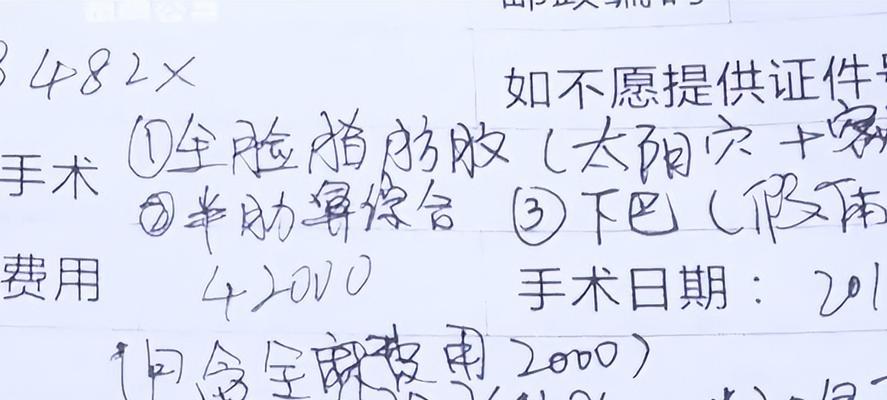 3482X
如不愿提供证件号
手术 ①全脸脂肪胶(太阳穴+
②半肋鼻综合 ③下巴(假
费用 42000 手术日期: 201
(内含全麻费用2000)